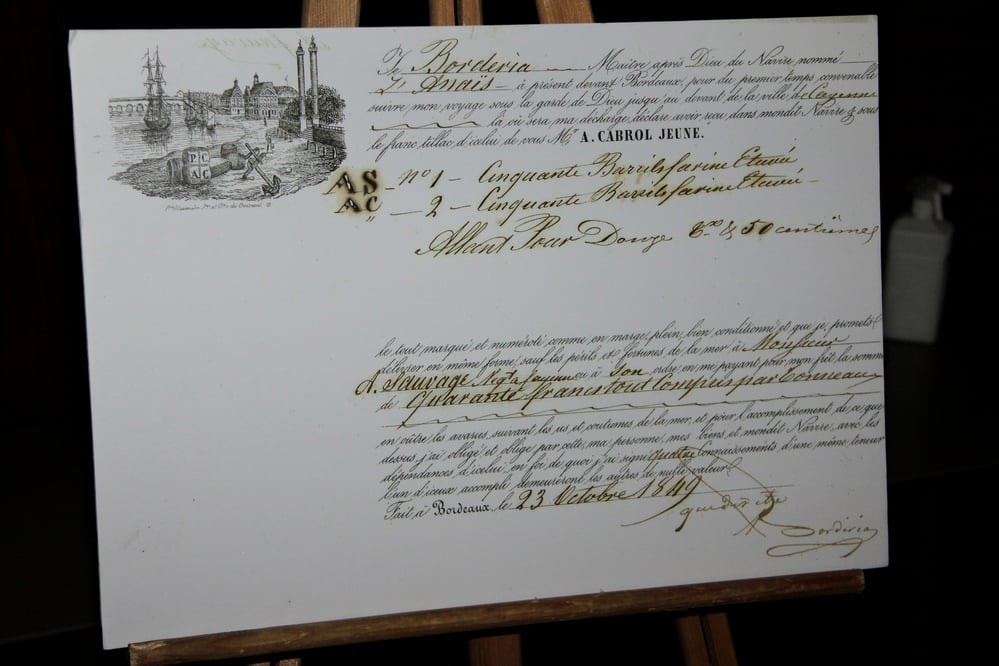 Je Borderia Maitre après Dieu du Navire nommé
L'Anaïs à présent devant Bordeaux, pour du premier temps convenable
suivre mon voyage sous la garde de Dieu jusqu'au devant de la ville de Cayenne
là où sera ma décharge, déclare avoir reçu dans mondit Navire & sous
le franc tillac d'icelui de vous Mr A. CABROL JEUNE.
P.C
A.C
AS n° 1 - Cinquante Barrils farine Etuvée
AC " - 2 - Cinquante Barrils farine Etuvée
Allant Pour Douze & 50 centièmes
le tout marqué et numéroté comme en marge plein, bien conditionné et que je promets
délivrer en même forme, sauf les périls et fortunes de la mer à Monsieur
A. Sauvage Négt a Cayenne ou à Son ordre en me payant pour mon frêt la somme
de Quarante francs tout Compris par tonneau
en outre les avaries, suivant les us et coutumes de la mer, et pour l'accomplissement de ce que
dessus, j'ai obligé et oblige par cette, ma personne, mes biens, et mondit Navire, avec les
dépendances d'icelui, en foi de quoi j'ai signé quatre Connaissements d'une même teneur
l'un d'iceux accompli demeureront les autres de nulle valeur.
Fait à Bordeaux, le 23 Octobre 1849
que dit être
Borderia